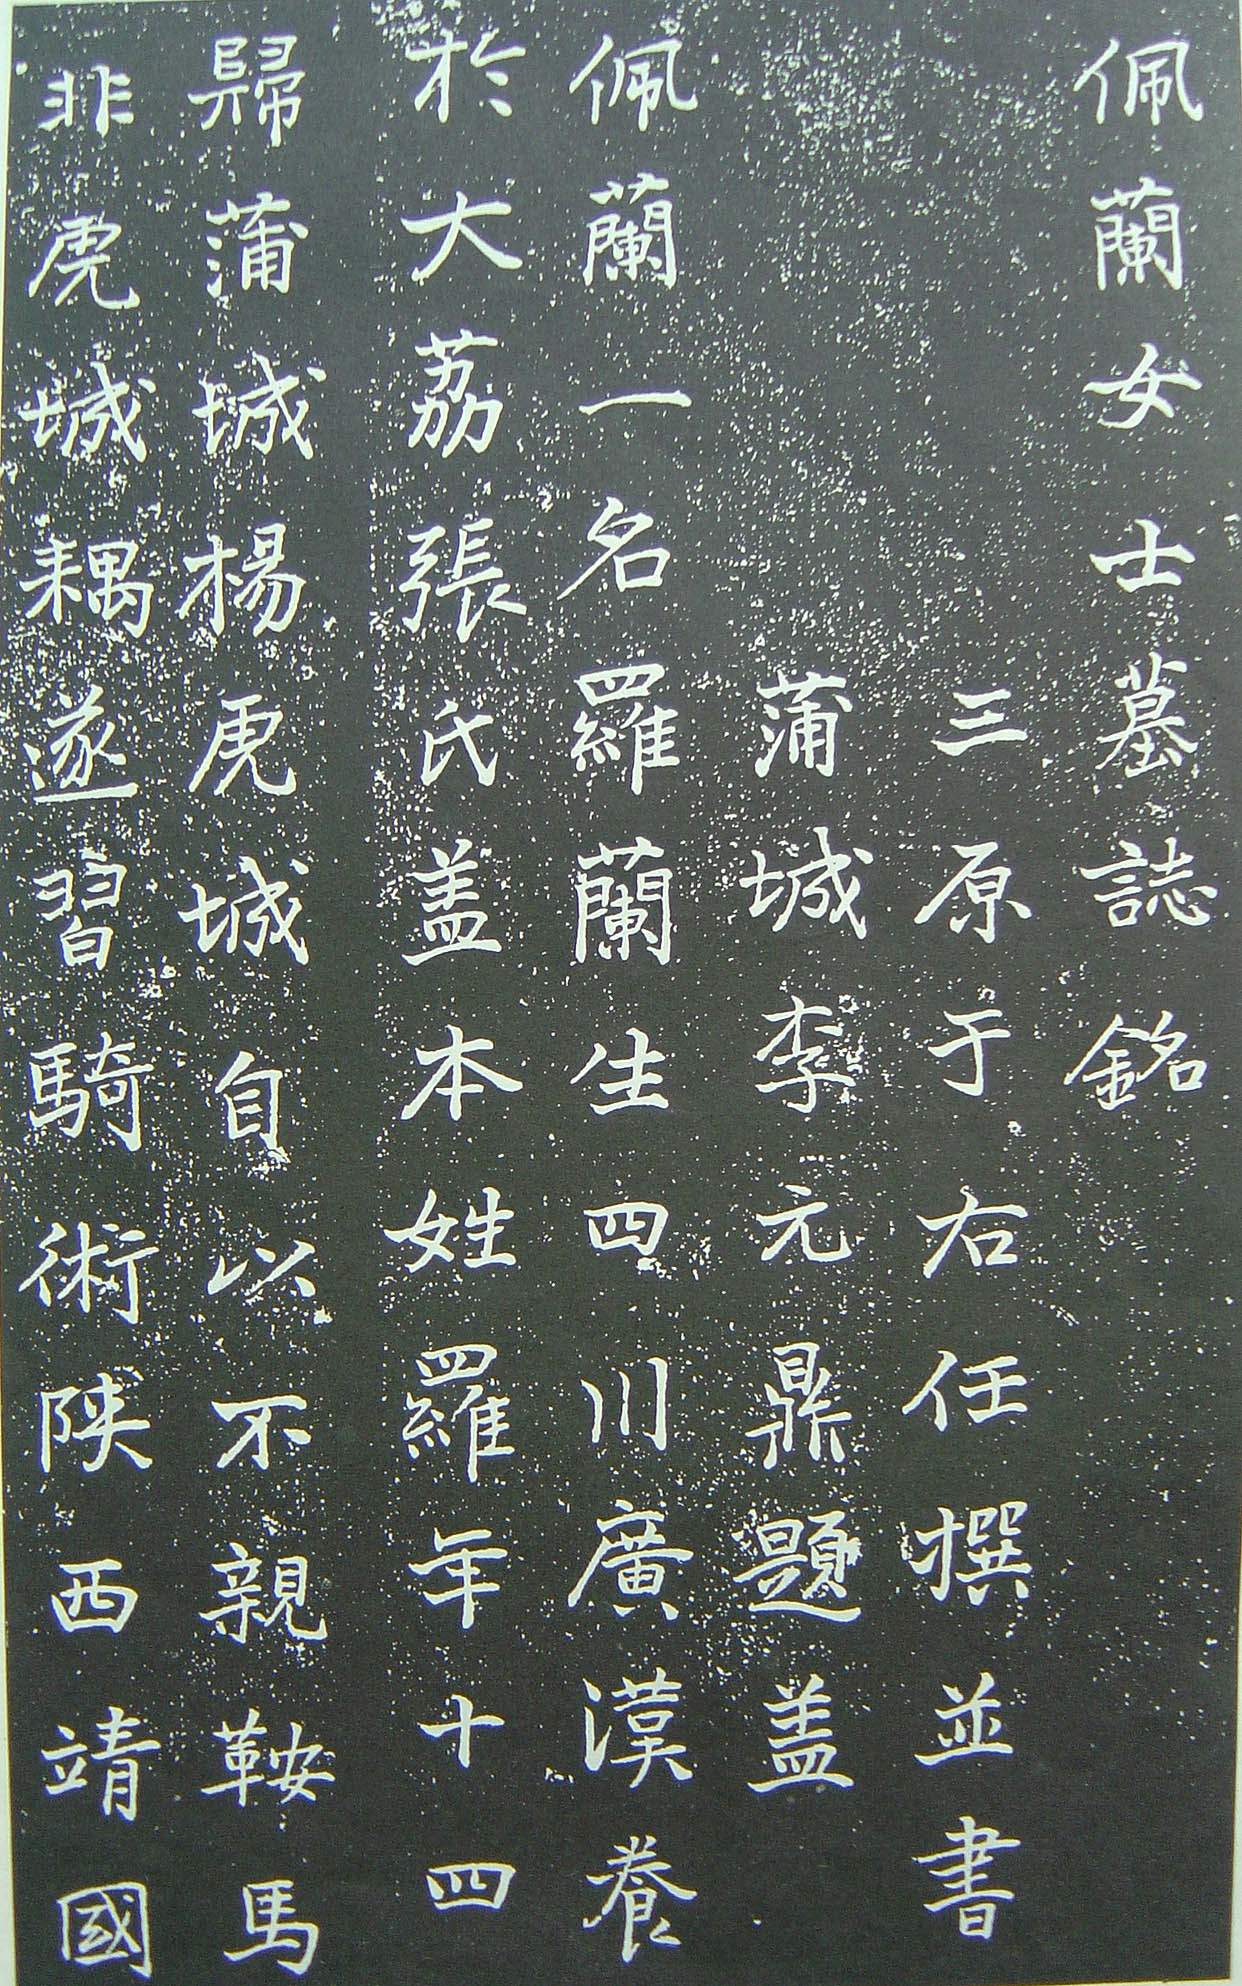 佩蘭女士墓誌銘
三原于右任撰並書
蒲城李元鼎題盖
佩蘭一名羅蘭生四川廣漢養
於大荔張氏盖本姓羅年十四
歸蒲城楊虎城自以不親鞍馬
非虎城耦遂習騎術陝西靖國